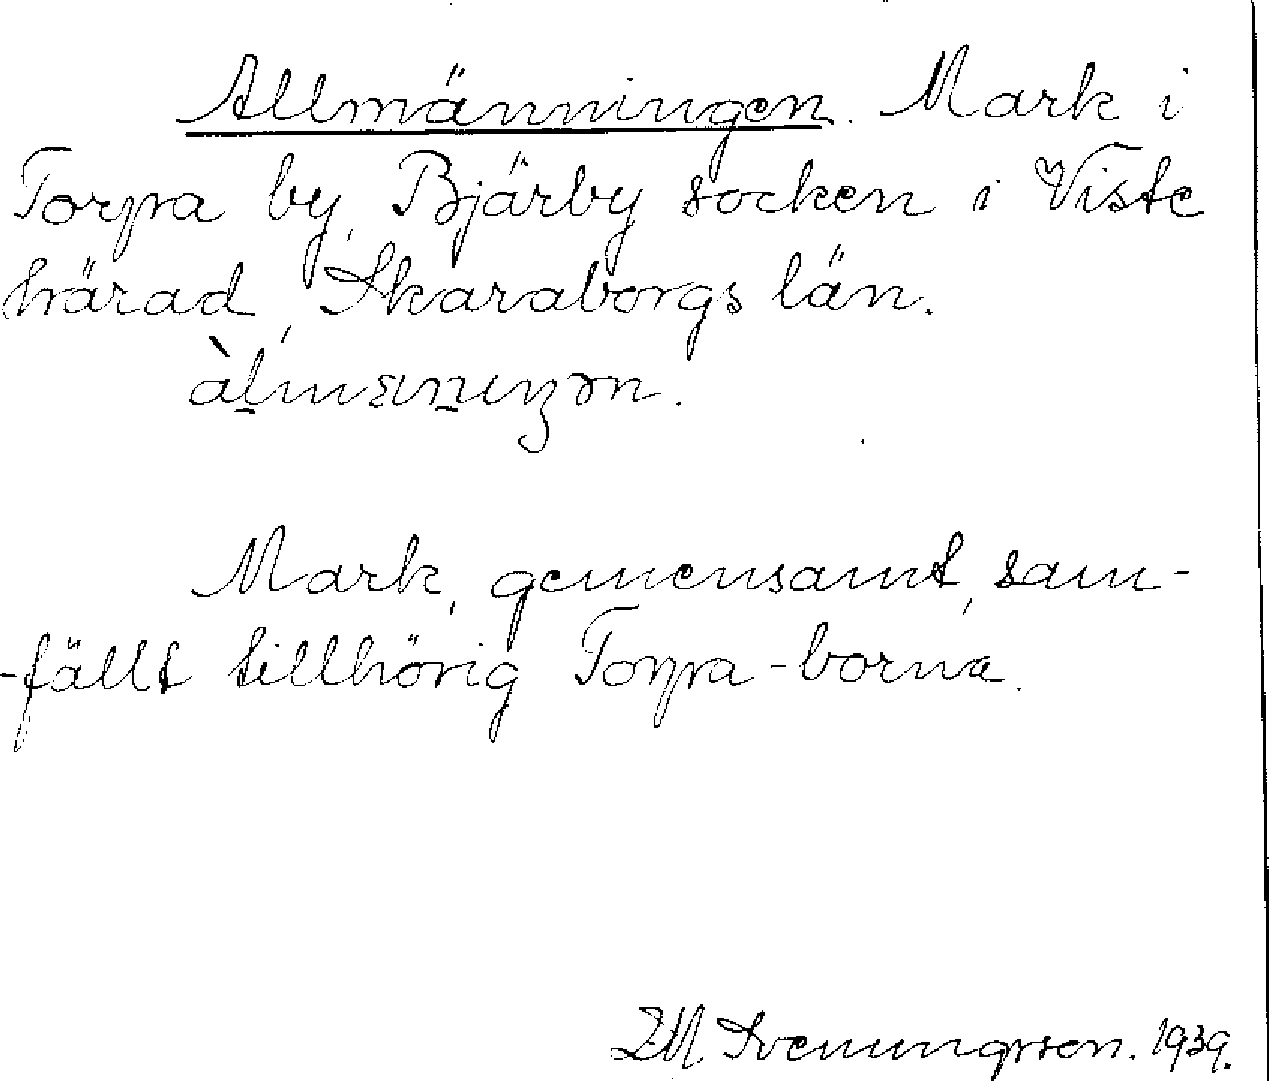 Allmänningen. Mark i
Torpa by, Bjärby socken i Viste
härad, Skaraborgs län.
Mark, gemensamt, sam-
-fällt tillhörig Torpa-borna.
Svenungsson. 1939.